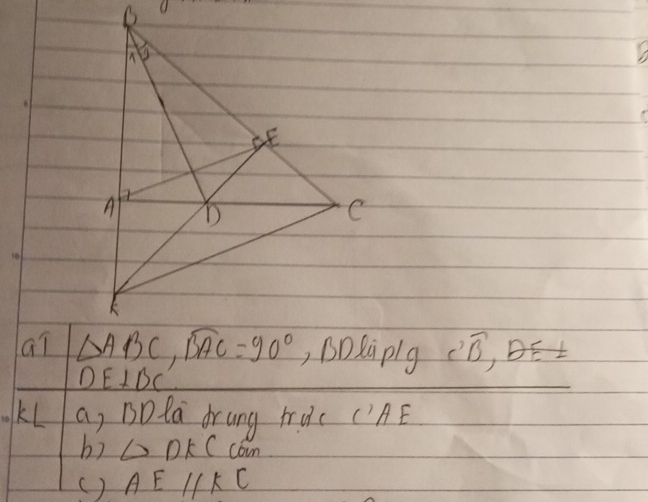 B
1 2
E
A
D
C
K
GT | △ABC, BAC = 90°, BD là p/g c' B̂, DE ⊥
DE ⊥ BC
KL | a, BD là trung trực c' AE
b) △ DKC cân
c) AE // KC